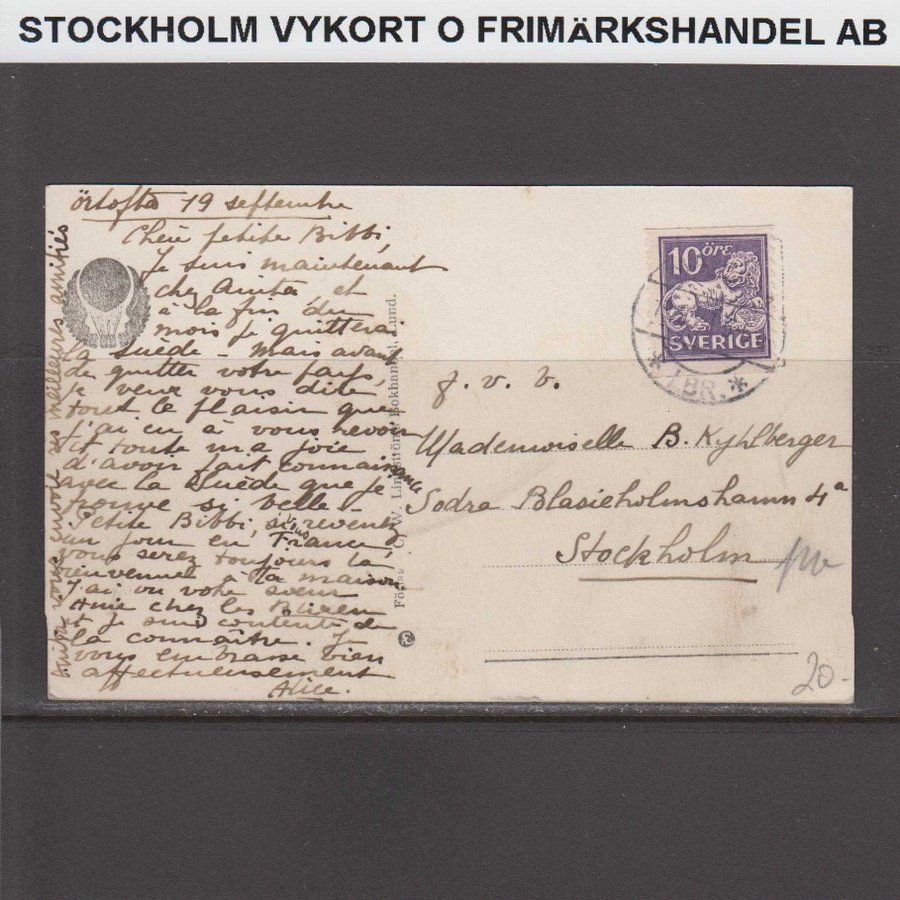 STOCKHOLM VYKORT O FRIMÄRKSHANDEL AB
Örtofta 19 septembre
Chère petite Bibbi,
Je suis maintenant
chez Anita et
à la fin du
mois je quitterai
la Suède - mais avant
de quitter votre pays,
je veux vous dite
tout le plaisir que
j'ai eu à vous revoir
et toute ma joie
d'avoir fait connaissance
avec la Suède que je
trouve si belle -
Petite Bibbi, si vous revenez
un jour en France
vous serez toujours la
bienvenue à la maison
J'ai vu votre soeur
chez les
et je suis contente de
la connaître. Je
vous embrasse bien
affectueusement
Alice.
Anita vous envoie ses meilleurs amitiés
Förlag C. W. Lindströms Bokhandel, Lund.
10 öre
SVERIGE
* LBR. *
f. v. b.
Mademoiselle B. Kyhlberger
Södra Blasieholmshamn 4a
Stockholm
20-